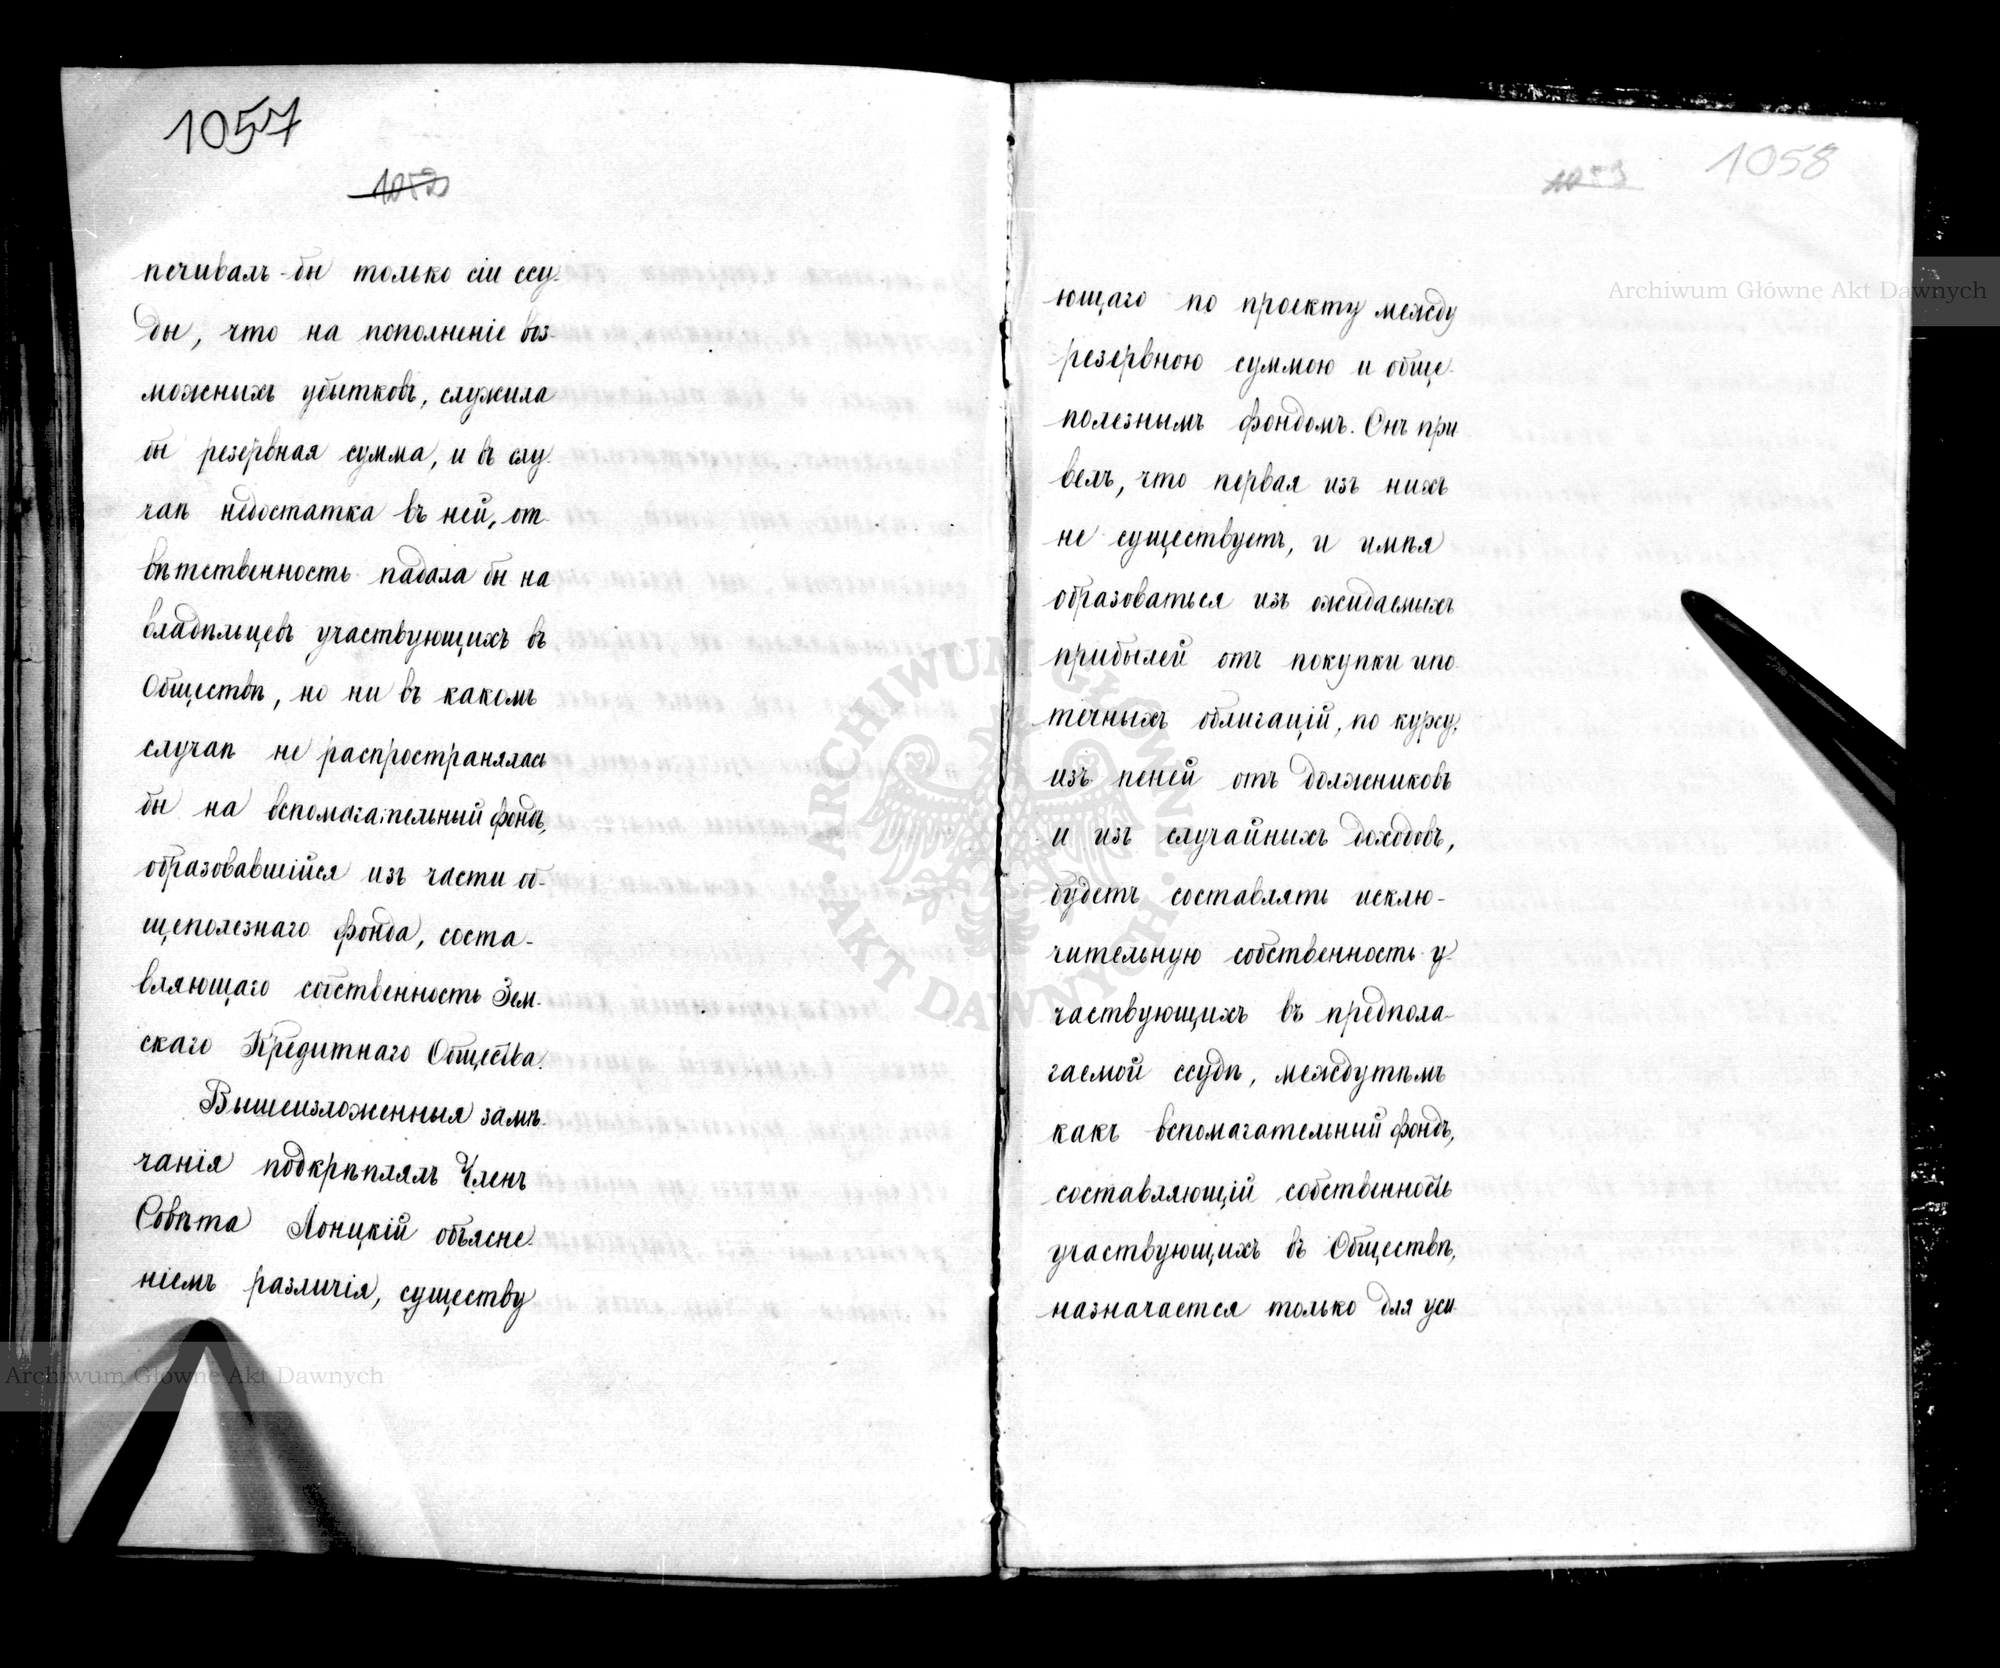 1057
печивалъ-бы только сіи ссу-
ды, что на пополненіе воз-
можныхъ убытковъ, служила
бы резервная сумма, и въ слу-
чаѣ недостатка въ ней, от-
вѣтственность падала бы на
владѣльцевъ участвующихъ въ
Обществѣ, но ни въ какомъ
случаѣ не распространялась
бы на вспомагательный фондъ,
образовавшійся изъ части об-
щеполезнаго фонда, соста-
вляющаго собственность Зем-
скаго Кредитнаго Общества.
Вышеизложенныя замѣ-
чанія подкрѣплялъ Членъ
Совѣта Лонцкій объясне-
ніемъ различія, существу
1058
1059
ющаго по проекту между
резервною суммою и обще-
полезнымъ фондомъ. Онъ при
велъ, что первая изъ нихъ
не существуетъ, и имѣя
образоваться изъ ожидаемыхъ
прибылей отъ покупки ипо-
течныхъ облигацій, по курсу,
изъ пеней отъ должниковъ
и изъ случайныхъ доходовъ,
будетъ составлять исклю-
чительную собственность у-
частвующихъ въ предпола-
гаемой ссудѣ, междутѣмъ
какъ вспомагательный фондъ,
составляющій собственность
участвующихъ въ Обществѣ,
назначается только для уси-
Archiwum Główne Akt Dawnych
Archiwum Główne Akt Dawnych
ARCHIWUM GŁÓWNE · AKT DAWNYCH ·